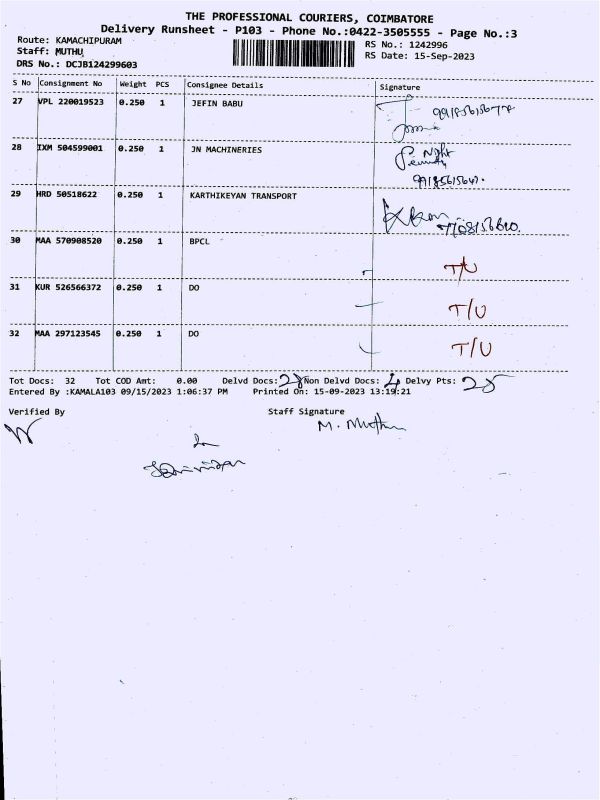 THE PROFESSIONAL COURIERS, COIMBATORE
Delivery Runsheet - P103 - Phone No.:0422-3505555 - Page No.:3
Route: KAMACHIPURAM
RS No.: 1242996
Staff: MUTHU
RS Date: 15-Sep-2023
DRS No.: DCJB124299603
S No Consignment No Weight PCS Consignee Details Signature
27 VPL 220019523 0.250 1 JEFIN BABU
28 IXM 504599001 0.250 1 JN MACHINERIES Night Security
29 HRD 50518622 0.250 1 KARTHIKEYAN TRANSPORT
30 MAA 570908520 0.250 1 BPCL T/U
31 KUR 526566372 0.250 1 DO T/U
32 MAA 297123545 0.250 1 DO T/U
Tot Docs: 32 Tot COD Amt: 0.00 Delvd Docs: 28 Non Delvd Docs: 4 Delvy Pts: 25
Entered By :KAMALA103 09/15/2023 1:06:37 PM Printed On: 15-09-2023 13:19:21
Verified By Staff Signature
M. Muthu